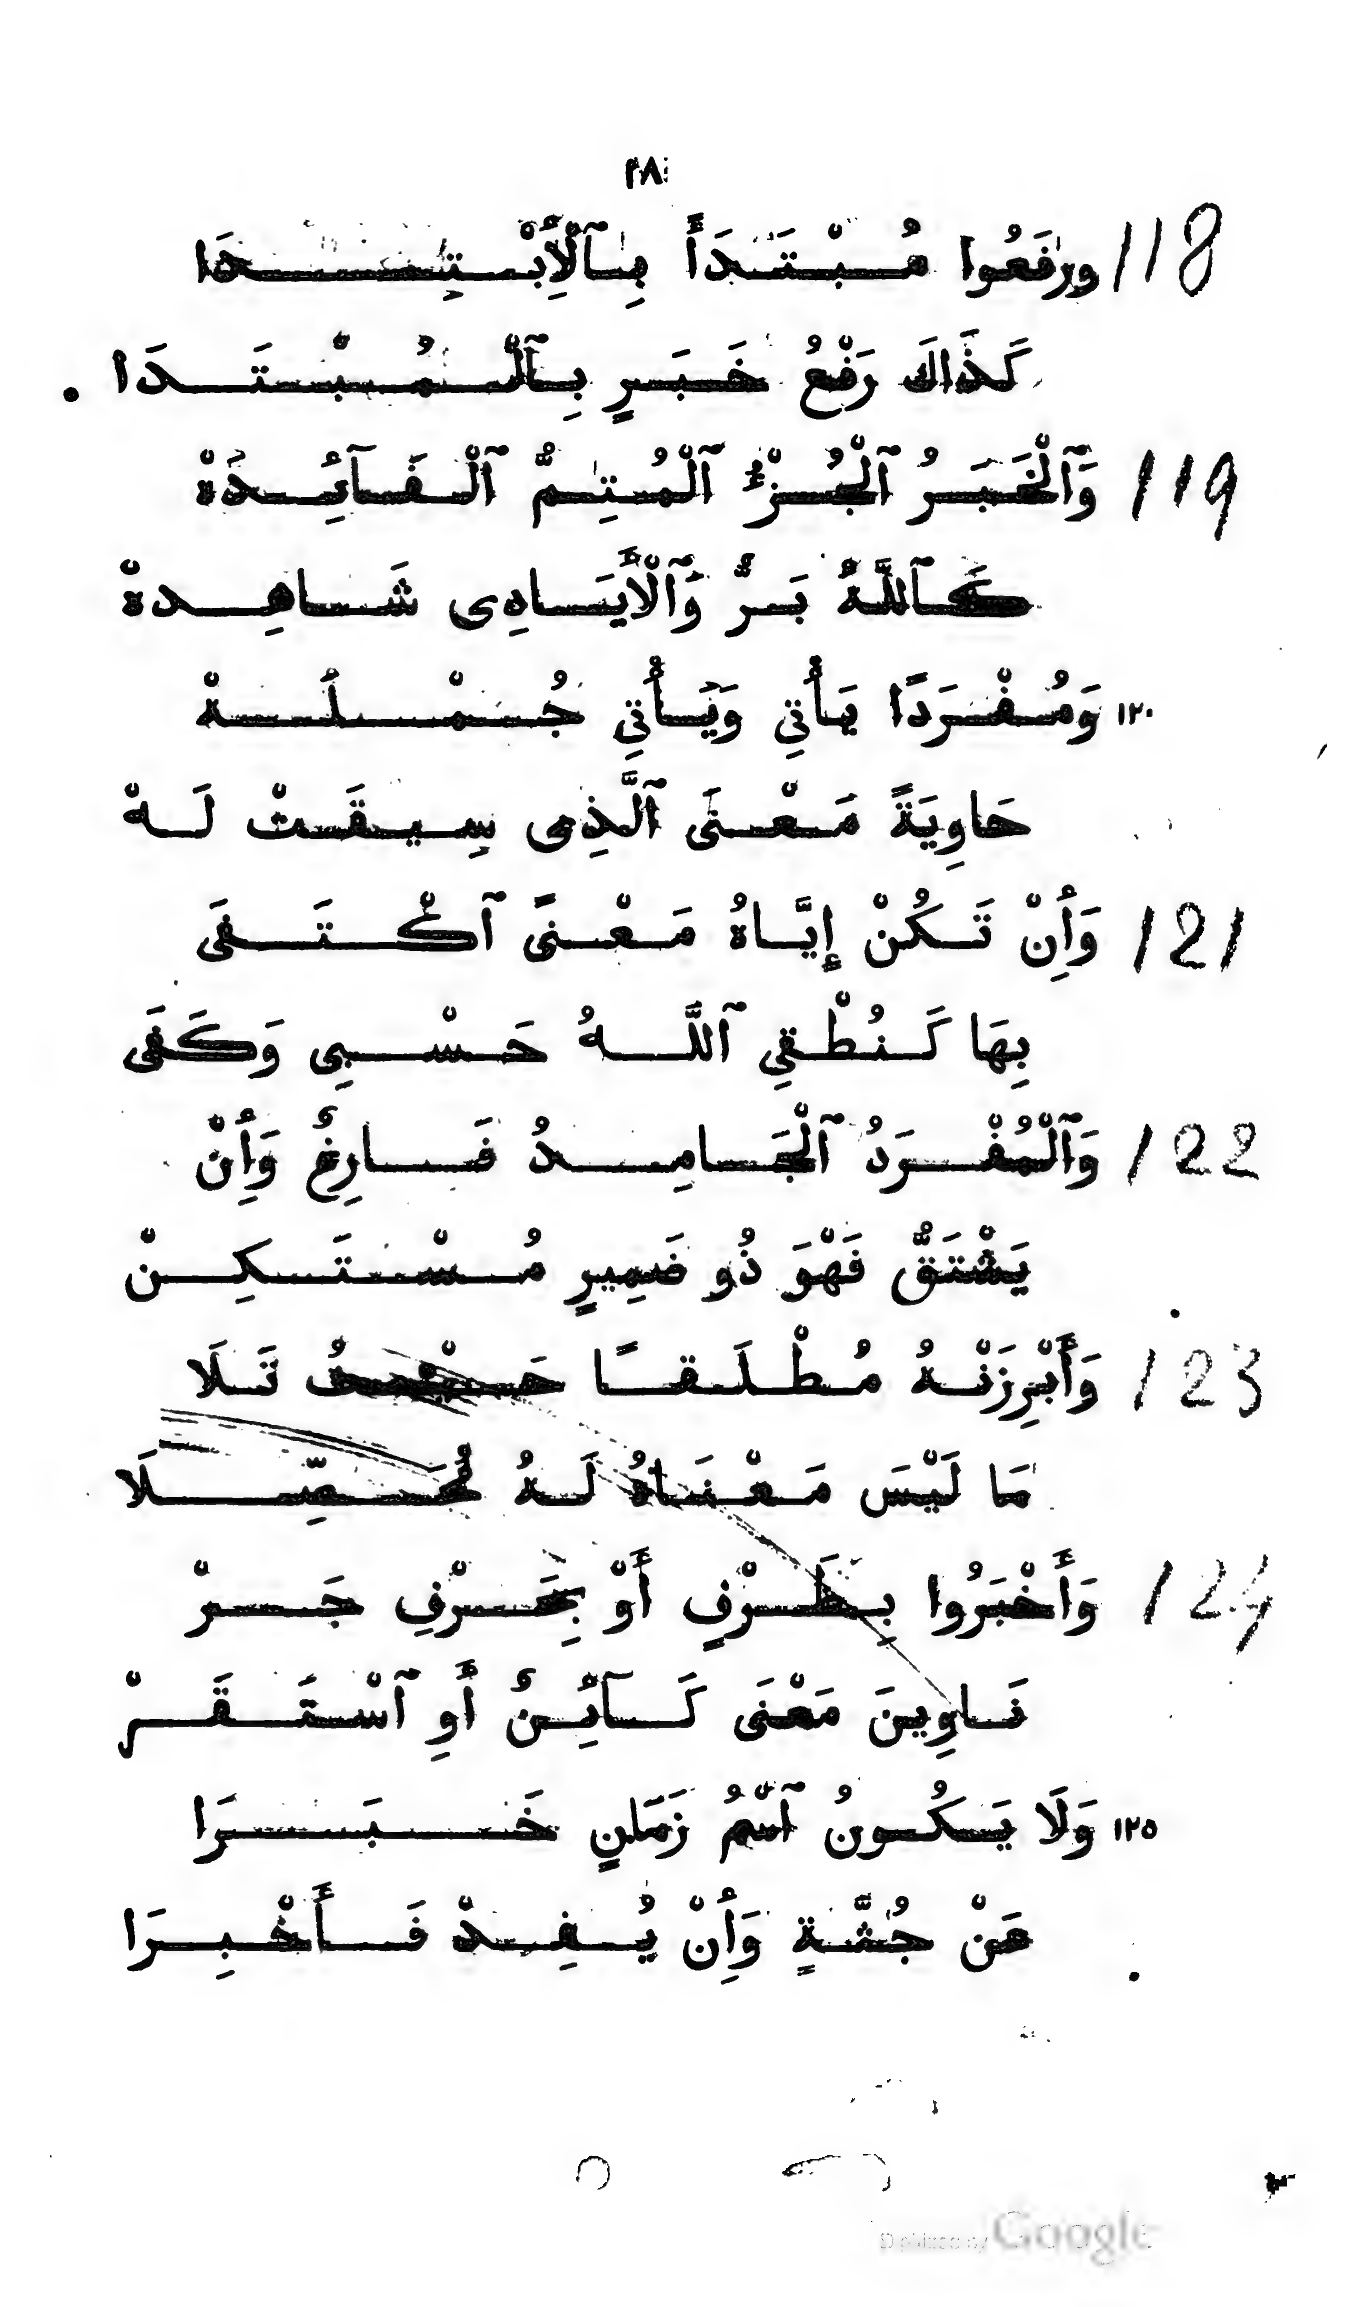 ٢٨
118 ورَفَعُوا مُبْتَدَأً بِٱلْأِبْتِدَا
كَذَاكَ رَفْعُ خَبَرٍ بِٱلْمُبْتَدَا
119 وَٱلْخَبَرُ ٱلْجُزْءُ ٱلْمُتِمُّ ٱلْفَآئِدَهْ
كَٱللّٰهُ بَرٌّ وَٱلْأَيَادِى شَاهِدهْ
١٢٠ وَمُفْرَدًا يَأْتِي وَيَأْتِي جُمْلَهْ
حَاوِيَةً مَعْنَى ٱلَّذِى سِيقَتْ لَهْ
121 وَأِنْ تَكُنْ إِيَّاهُ مَعْنًى ٱكْتَفَى
بِهَا كَنُطْقِي ٱللَّهُ حَسْبِي وَكَفَى
122 وَٱلْمُفْرَدُ ٱلْجَامِدُ فَارِغٌ وَأِنْ
يَشْتَقُّ فَهْوَ ذُو ضَمِيرٍ مُسْتَكِنْ
123 وَأَبْرِزَنْهُ مُطْلَقًا حَيْثُ تَلَا
مَا لَيْسَ مَعْنَاهُ لَهُ مُحَصِّلَا
124 وَأَخْبَرُوا بِظَرْفٍ أَوْ بِحَرْفِ جَرْ
نَاوِينَ مَعْنَى كَآئِنٌ أَوِ ٱسْتَقَرْ
١٢٥ وَلَا يَكُونُ ٱسْمُ زَمَانٍ خَبَرَا
عَنْ جُثَّةٍ وَأِنْ يُفِدْ فَأَخْبِرَا
Digitized by Google